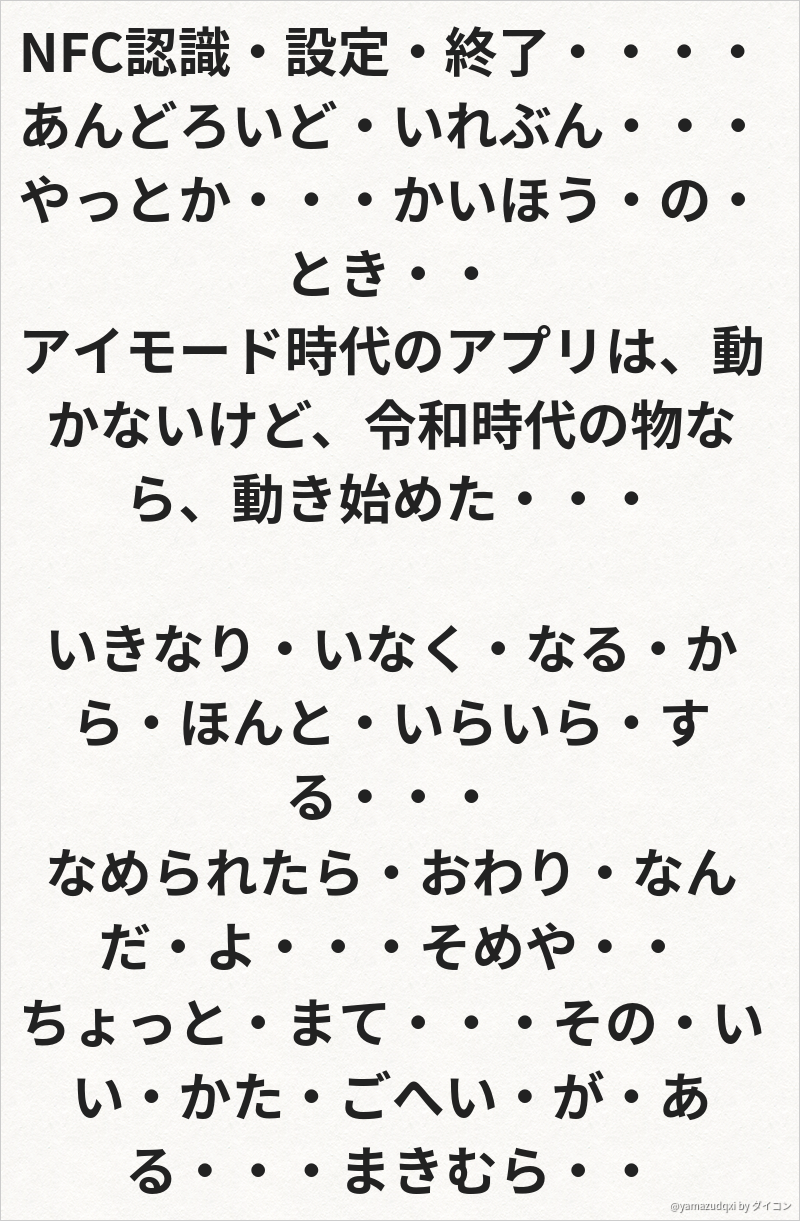 NFC認識・設定・終了・・・・
あんどろいど・いれぶん・・・
やっとか・・・かいほう・の・
とき・・
アイモード時代のアプリは、動
かないけど、令和時代の物な
ら、動き始めた・・・
いきなり・いなく・なる・か
ら・ほんと・いらいら・す
る・・・
なめられたら・おわり・なん
だ・よ・・・そめや・・
ちょっと・まて・・・その・い
い・かた・ごへい・が・あ
る・・・まきむら・・
@yamazudqxi by ダイコン